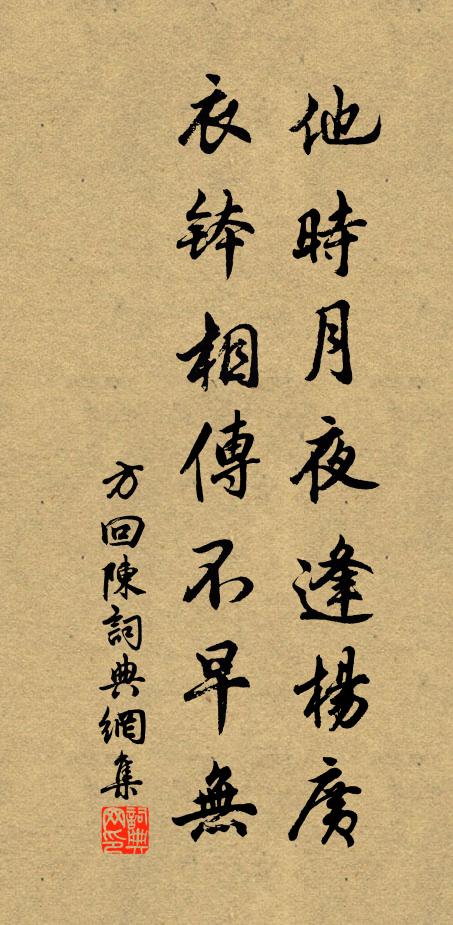 他時月夜逢楊廣
衣缽相傳不早無
方回陳詞典網集
詞典網印